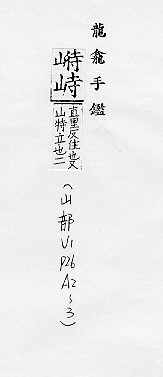 龍龕手鑑
㟚峙
直里反住也又
山特立也二
(山部V1
P26
A2~3)